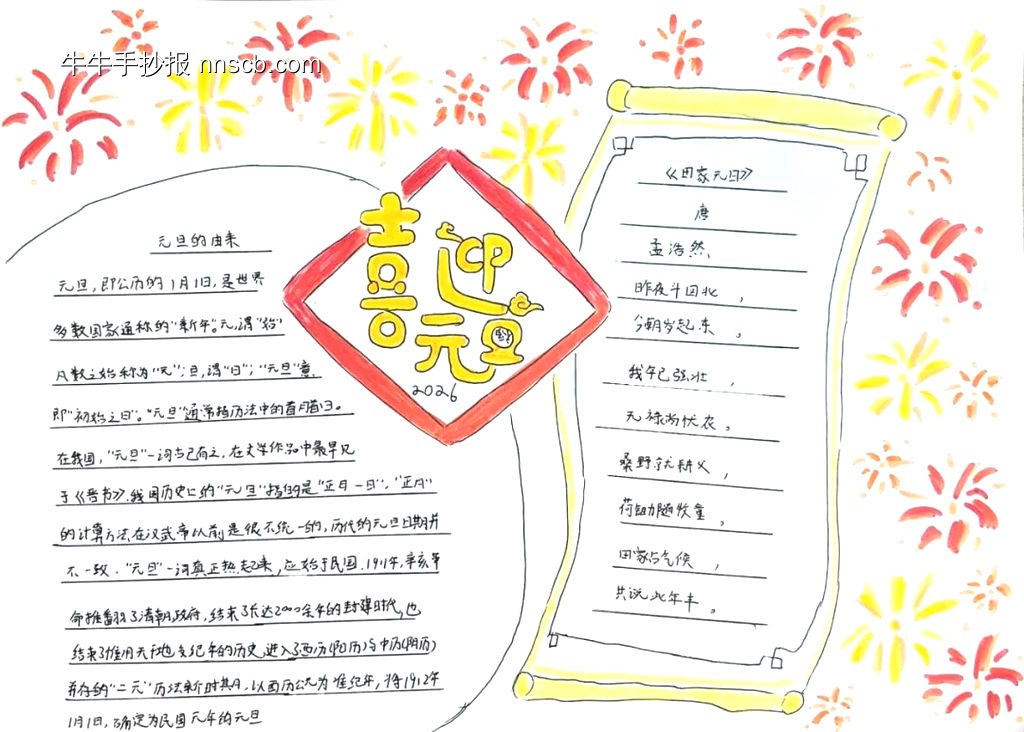 牛牛手抄报 nnscb.com
元旦的由来
元旦,即公历的1月1日,是世界
多数国家通称的"新年"。元,谓"始"
凡数之始称为"元";旦,谓"日";"元旦"意
即"初始之日"。"元旦"通常指历法中的首月首日。
在我国,"元旦"一词古已有之,在文学作品中最早见
于《晋书》。我国历史上的"元旦"指的是"正月一日","正月"
的计算方法,在汉武帝以前是很不统一的,历代的元旦日期并
不一致。"元旦"一词真正热起来,应始于民国.1911年,辛亥革
命推翻了清朝政府,结束了长达2000余年的封建时代,也
结束了惟用天干地支纪年的历史,进入了西历(阳历)与中历(阴历)
并存的"二元"历法新时期,以西历公元为准纪年,将1912年
1月1日,确定为民国元年的元旦
喜迎
元旦
2026
《田家元日》
唐
孟浩然
昨夜斗回北,
今朝岁起东。
我年已强壮,
无禄尚忧农。
桑野就耕父,
荷锄随牧童。
田家占气候,
共说此年丰。